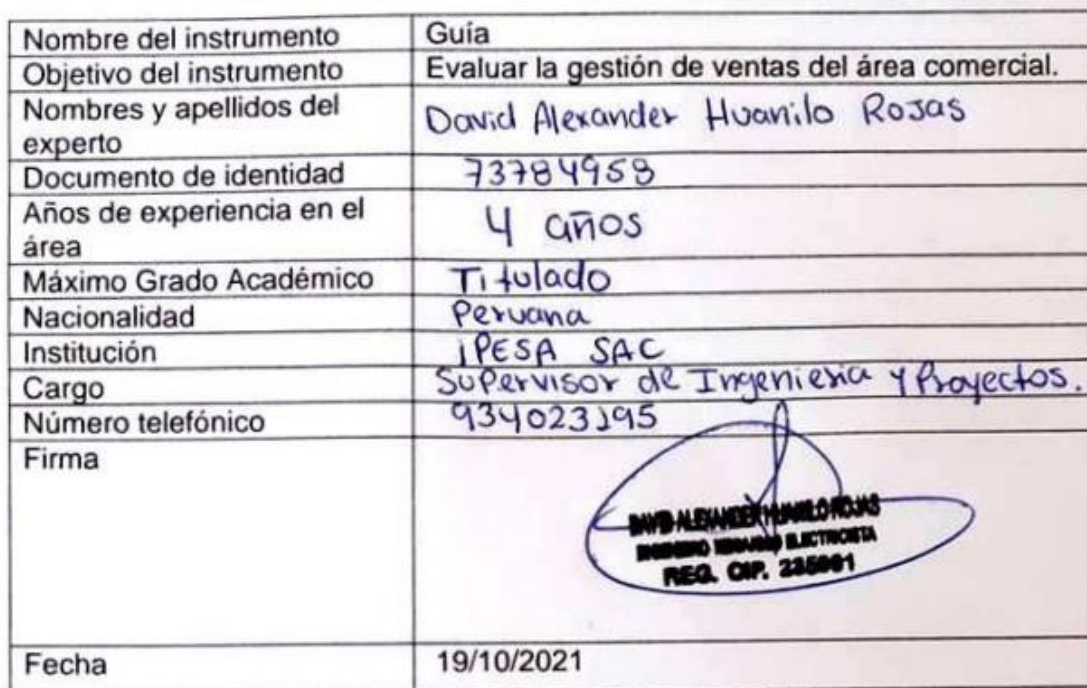 Nombre del instrumento Guía
Objetivo del instrumento Evaluar la gestión de ventas del área comercial.
Nombres y apellidos del experto David Alexander Huanilo Rojas
Documento de identidad 73784958
Años de experiencia en el área 4 años
Máximo Grado Académico Titulado
Nacionalidad Peruana
Institución IPESA SAC
Cargo Supervisor de Ingenieria y Proyectos.
Número telefónico 934023195
Firma
DAVID ALEXANDER HUANILO ROJAS
INGENIERO MECANICO ELECTRICISTA
REG. CIP.
Fecha 19/10/2021